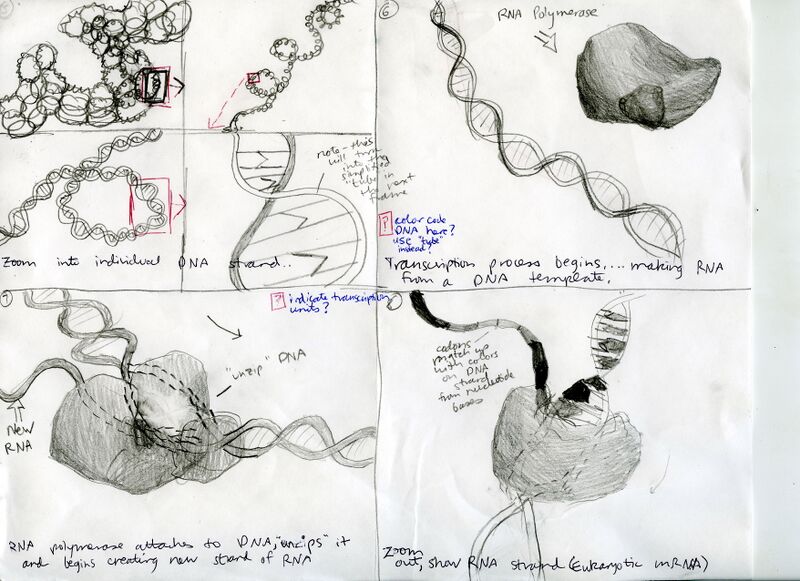 5
note-this
will turn
into the
simplified
"tube" in
the next
frame
Zoom into individual DNA strand..
6
RNA Polymerase
?
color code
DNA here?
use "tube"
instead?
Transcription process begins,... making RNA
from a DNA template.
7
?
indicate transcription
units?
"unzip" DNA
New
RNA
RNA polymerase attaches to DNA, "unzips" it
and begins creating new strand of RNA
codons
match up
with colors
on DNA
strand
from nucleotide
bases
Zoom
out, show RNA strand (Eukaryotic mRNA)